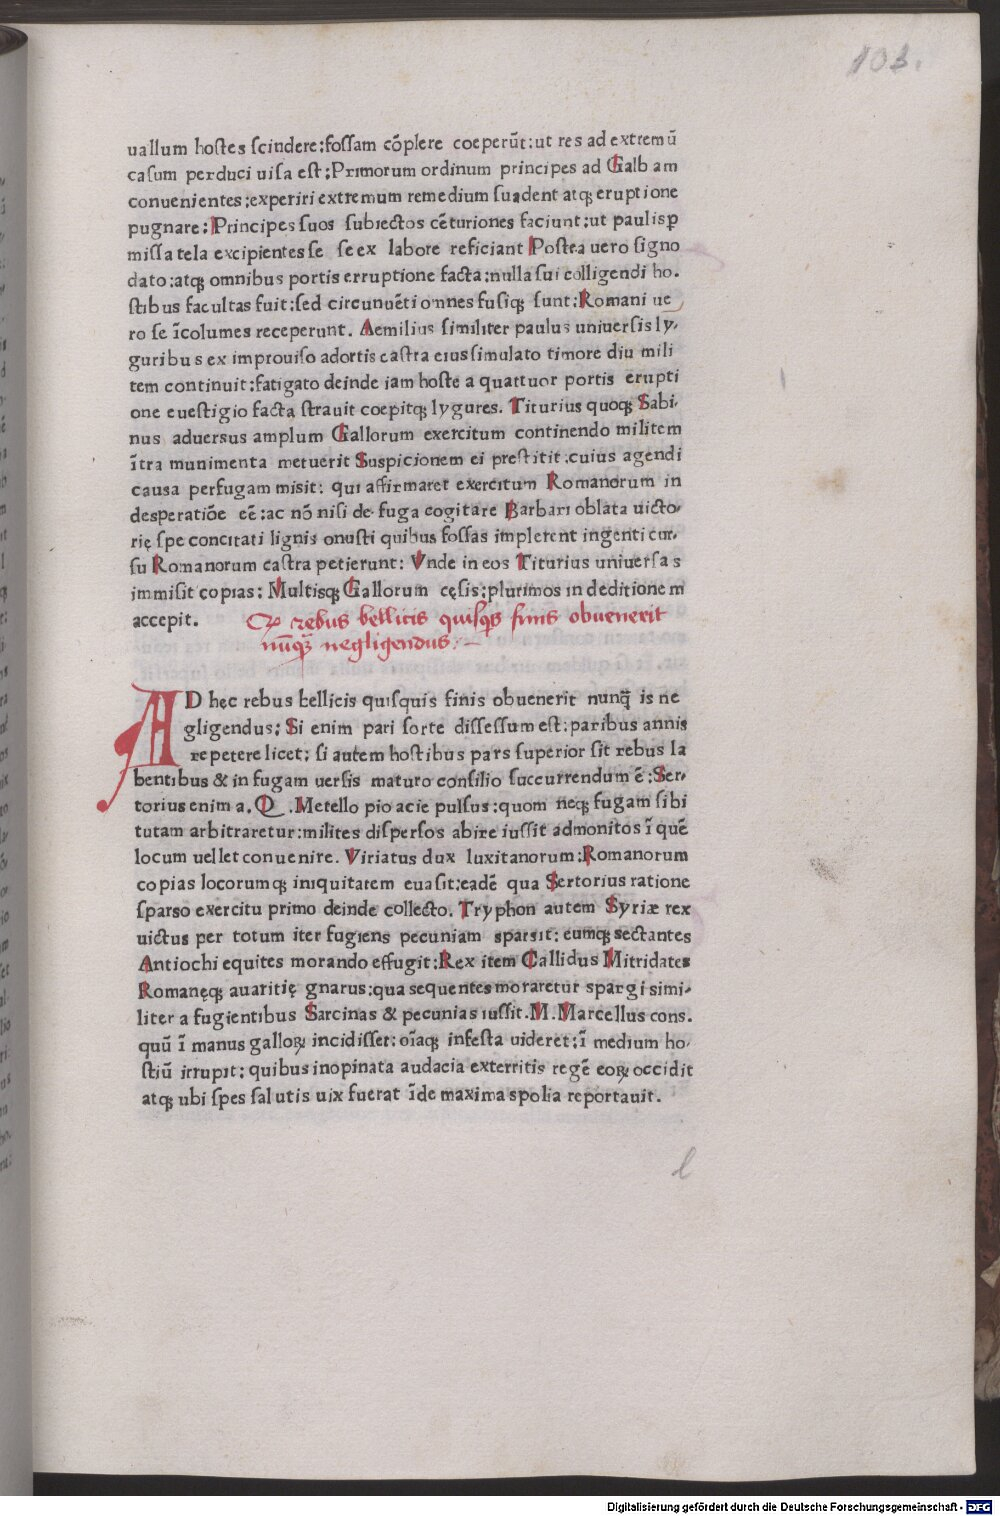 103.
uallum hostes scindere:fossam cõplere coeperũt:ut res ad extremũ
casum perduci uisa est:Primorum ordinum principes ad Galbam
conuenientes:experiri extremum remedium suadent atq; eruptione
pugnare:Principes suos subiectos cẽturiones faciunt:ut paulisp̱
missa tela excipientes se se ex labore reficiant Postea uero signo
dato:atq; omnibus portis erruptione facta:nulla sui colligendi ho-
stibus facultas fuit:sed circunuẽti omnes fusiq; sunt:Romani ue
ro se ĩcolumes receperunt. Aemilius similiter paulus uniuersis ly-
guribus ex improuiso adortis castra eius simulato timore diu mili
tem continuit:fatigato deinde iam hoste a quattuor portis erupti
one euestigio facta strauit coepitq; lygures. Titurius quoq; Sabi-
nus aduersus amplum Gallorum exercitum continendo militem
ĩtra munimenta metuerit Suspicionem ei prestitit:cuius agendi
causa perfugam misit: qui affirmaret exercitum Romanorum in
desperatiõe eẽ:ac nõ nisi de fuga cogitare Barbari oblata uicto-
rię spe concitati lignis onusti quibus fossas implerent ingenti cur-
su Romanorum castra petierunt: Vnde in eos Titurius uniuersas
immisit copias: Multisq; Gallorum cęsis:plurimos in deditionem
accepit.
rebus bellicis quisq̃s finis obuenerit
nũq̃ negligendus.
AD hęc rebus bellicis quisquis finis obuenerit nunq̃ is ne
gligendus: Si enim pari sorte dissessum est:paribus annis
repetere licet: si autem hostibus pars superior sit rebus la
bentibus & in fugam uersis maturo consilio succurrendum ẽ:Ser-
torius enim a. Q. Metello pio acie pulsus:quom neq; fugam sibi
tutam arbitraretur:milites dispersos abire iussit admonitos ĩ quẽ
locum uellet conuenire. Viriatus dux luxitanorum:Romanorum
copias locorumq; iniquitatem euasit:eadẽ qua Sertorius ratione
sparso exercitu primo deinde collecto. Tryphon autem Syriæ rex
uictus per totum iter fugiens pecuniam sparsit: eumq; sectantes
Antiochi equites morando effugit:Rex item Callidus Mitridates
Romanęq; auaritię gnarus:qua sequentes moraretur spargi simi-
liter a fugientibus Sarcinas & pecunias iussit. M. Marcellus cons.
quũ ĩ manus galloꝝ incidisset: oĩaq; infesta uideret:ĩ medium ho-
stiũ irrupit: quibus inopinata audacia exterritis regẽ eoꝝ occidit
atq; ubi spes salutis uix fuerat ĩde maxima spolia reportauit.
l
Digitalisierung gefördert durch die Deutsche Forschungsgemeinschaft - DFG